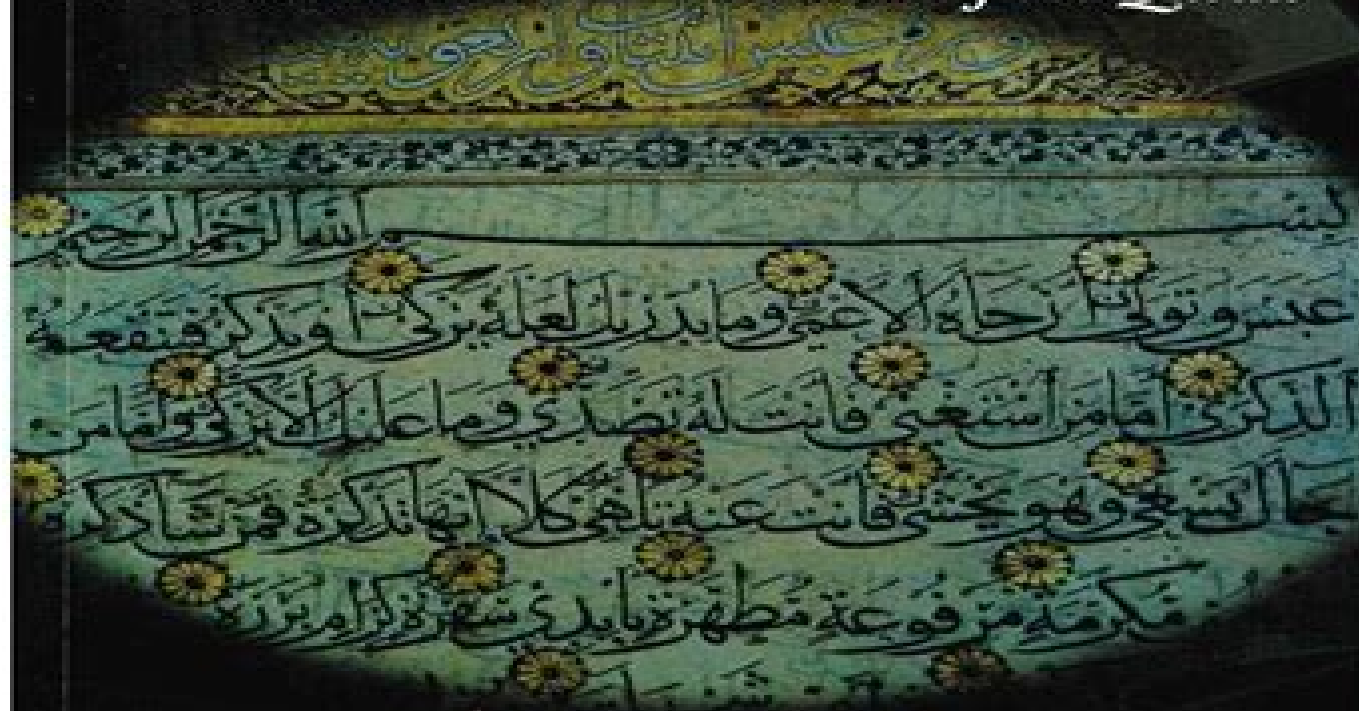 عبس
بسم الله الرحمن الرحيم
عبس وتولى ان جاه الاعمى وما يدريك لعله يزكى او يذكر فتنفعه
الذكرى اما من استغنى فانت له تصدى وما عليك الا يزكى واما من
جاك يسعى وهو يخشى فانت عنه تلهى كلا انها تذكرة فمن شا ذكره
مكرمة مرفوعة مطهرة بايدي سفرة كرام بررة